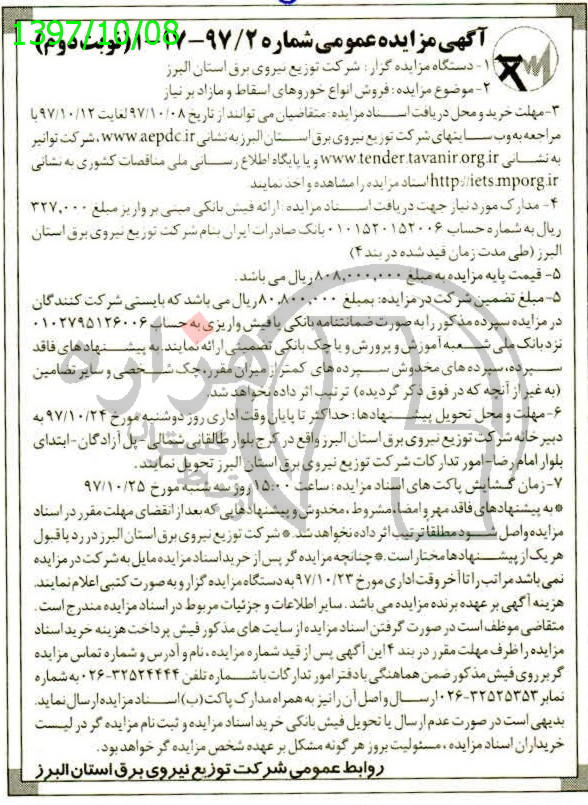 1397/10/08
آگهی مزایده عمومی شماره ۹۷/۲-۱۰۱۷ (نوبت دوم)
۱- دستگاه مزایده گزار: شرکت توزیع نیروی برق استان البرز
۲- موضوع مزایده: فروش انواع خوروهای اسقاط و مازاد بر نیاز
۳-مهلت خرید و محل دریافت اسناد مزایده: متقاضیان می توانند از تاریخ ۹۷/۱۰/۰۸ لغایت ۹۷/۱۰/۱۲ با
مراجعه به وب سایتهای شرکت توزیع نیروی برق استان البرز به نشانی www.aepdc.ir، شرکت توانیر
به نشانی www.tender.tavanir.org.ir و یا پایگاه اطلاع رسانی ملی مناقصات کشوری به نشانی
http://iets.mporg.ir اسناد مزایده را مشاهده و اخذ نمایند.
۴- مدارک مورد نیاز جهت دریافت اسناد مزایده: ارائه فیش بانکی مبنی بر واریز مبلغ ۳۲۷,۰۰۰
ریال به شماره حساب ۰۱۰۱۵۲۰۱۵۲۰۰۶ بانک صادرات ایران بنام شرکت توزیع نیروی برق استان
البرز (طی مدت زمان قید شده در بند ۴)
۵- قیمت پایه مزایده به مبلغ ۸۰۸,۰۰۰,۰۰۰ ریال می باشد.
۵-مبلغ تضمین شرکت در مزایده: بمبلغ ۸۰,۸۰۰,۰۰۰ ریال می باشد که بایستی شرکت کنندگان
در مزایده سپرده مذکور را به صورت ضمانتنامه بانکی یا فیش واریزی به حساب ۰۱۰۲۷۹۵۱۲۶۰۰۶
نزد بانک ملی شعبه آموزش و پرورش و یا چک بانکی تضمینی ارائه نمایند. به پیشنهادهای فاقد
سپرده، سپرده های مخدوش سپرده های کمتر از میزان مقرر، چک شخصی و سایر تضامین
(به غیر از آنچه که در فوق ذکر گردیده) ترتیب اثر داده نخواهد شد.
۶-مهلت و محل تحویل پیشنهادها: حداکثر تا پایان وقت اداری روز دوشنبه مورخ ۹۷/۱۰/۲۴ به
دبیرخانه شرکت توزیع نیروی برق استان البرز واقع در کرج بلوار طالقانی شمالی-پل آزادگان-ابتدای
بلوار امام رضا-امور تدارکات شرکت توزیع نیروی برق استان البرز تحویل نمایند.
۷- زمان گشایش پاکت های اسناد مزایده: ساعت ۱۵:۰۰ روز سه شنبه مورخ ۹۷/۱۰/۲۵
*به پیشنهادهای فاقد مهر و امضا، مشروط، مخدوش و پیشنهادهایی که بعد از انقضای مهلت مقرر در اسناد
مزایده واصل شود مطلقا ترتیب اثر داده نخواهد شد.* شرکت توزیع نیروی برق استان البرز در رد یا قبول
هر یک از پیشنهادها مختار است.* چنانچه مزایده گر پس از خرید اسناد مزایده مایل به شرکت در مزایده
نمی باشد مراتب را تا آخر وقت اداری مورخ ۹۷/۱۰/۲۳ به دستگاه مزایده گزار و به صورت کتبی اعلام نمایند.
هزینه آگهی بر عهده برنده مزایده می باشد. سایر اطلاعات و جزئیات مربوط در اسناد مزایده مندرج است.
متقاضی موظف است در صورت گرفتن اسناد مزایده از سایت های مذکور فیش پرداخت هزینه خرید اسناد
مزایده را ظرف مهلت مقرر در بند ۴ این آگهی پس از قید شماره مزایده، نام و آدرس و شماره تماس مزایده
گر بر روی فیش مذکور ضمن هماهنگی با دفتر امور تدارکات با شماره تلفن ۳۲۵۲۴۴۴۴-۰۲۶ به شماره
نمابر ۳۲۵۲۵۳۵۳-۰۲۶ ارسال و اصل آن را نیز به همراه مدارک پاکت (ب) اسناد مزایده ارسال نماید.
بدیهی است در صورت عدم ارسال یا تحویل فیش بانکی خرید اسناد مزایده و ثبت نام مزایده گر در لیست
خریداران اسناد مزایده، مسئولیت بروز هر گونه مشکل بر عهده شخص مزایده گر خواهد بود.
روابط عمومی شرکت توزیع نیروی برق استان البرز